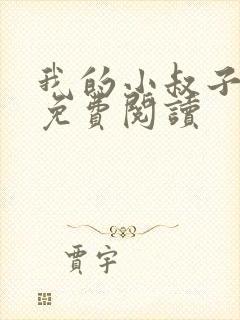 我的小叔子
免費閱讀
賈宇